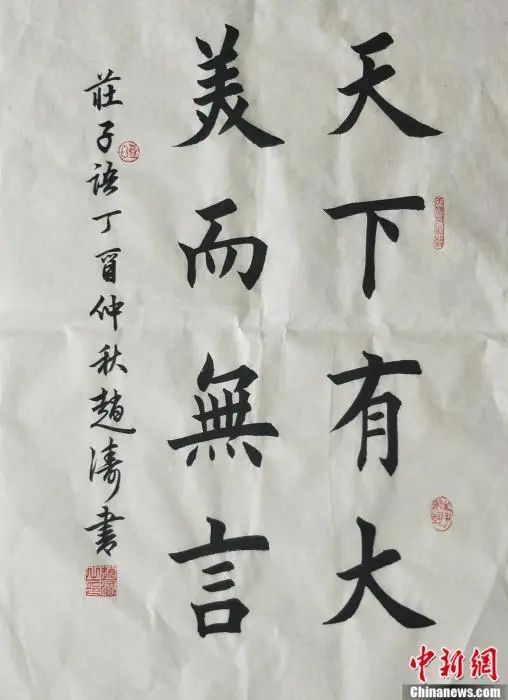 天下有大
美而無言
莊子語丁酉仲秋趙濤書
中新网
Chinanews.com